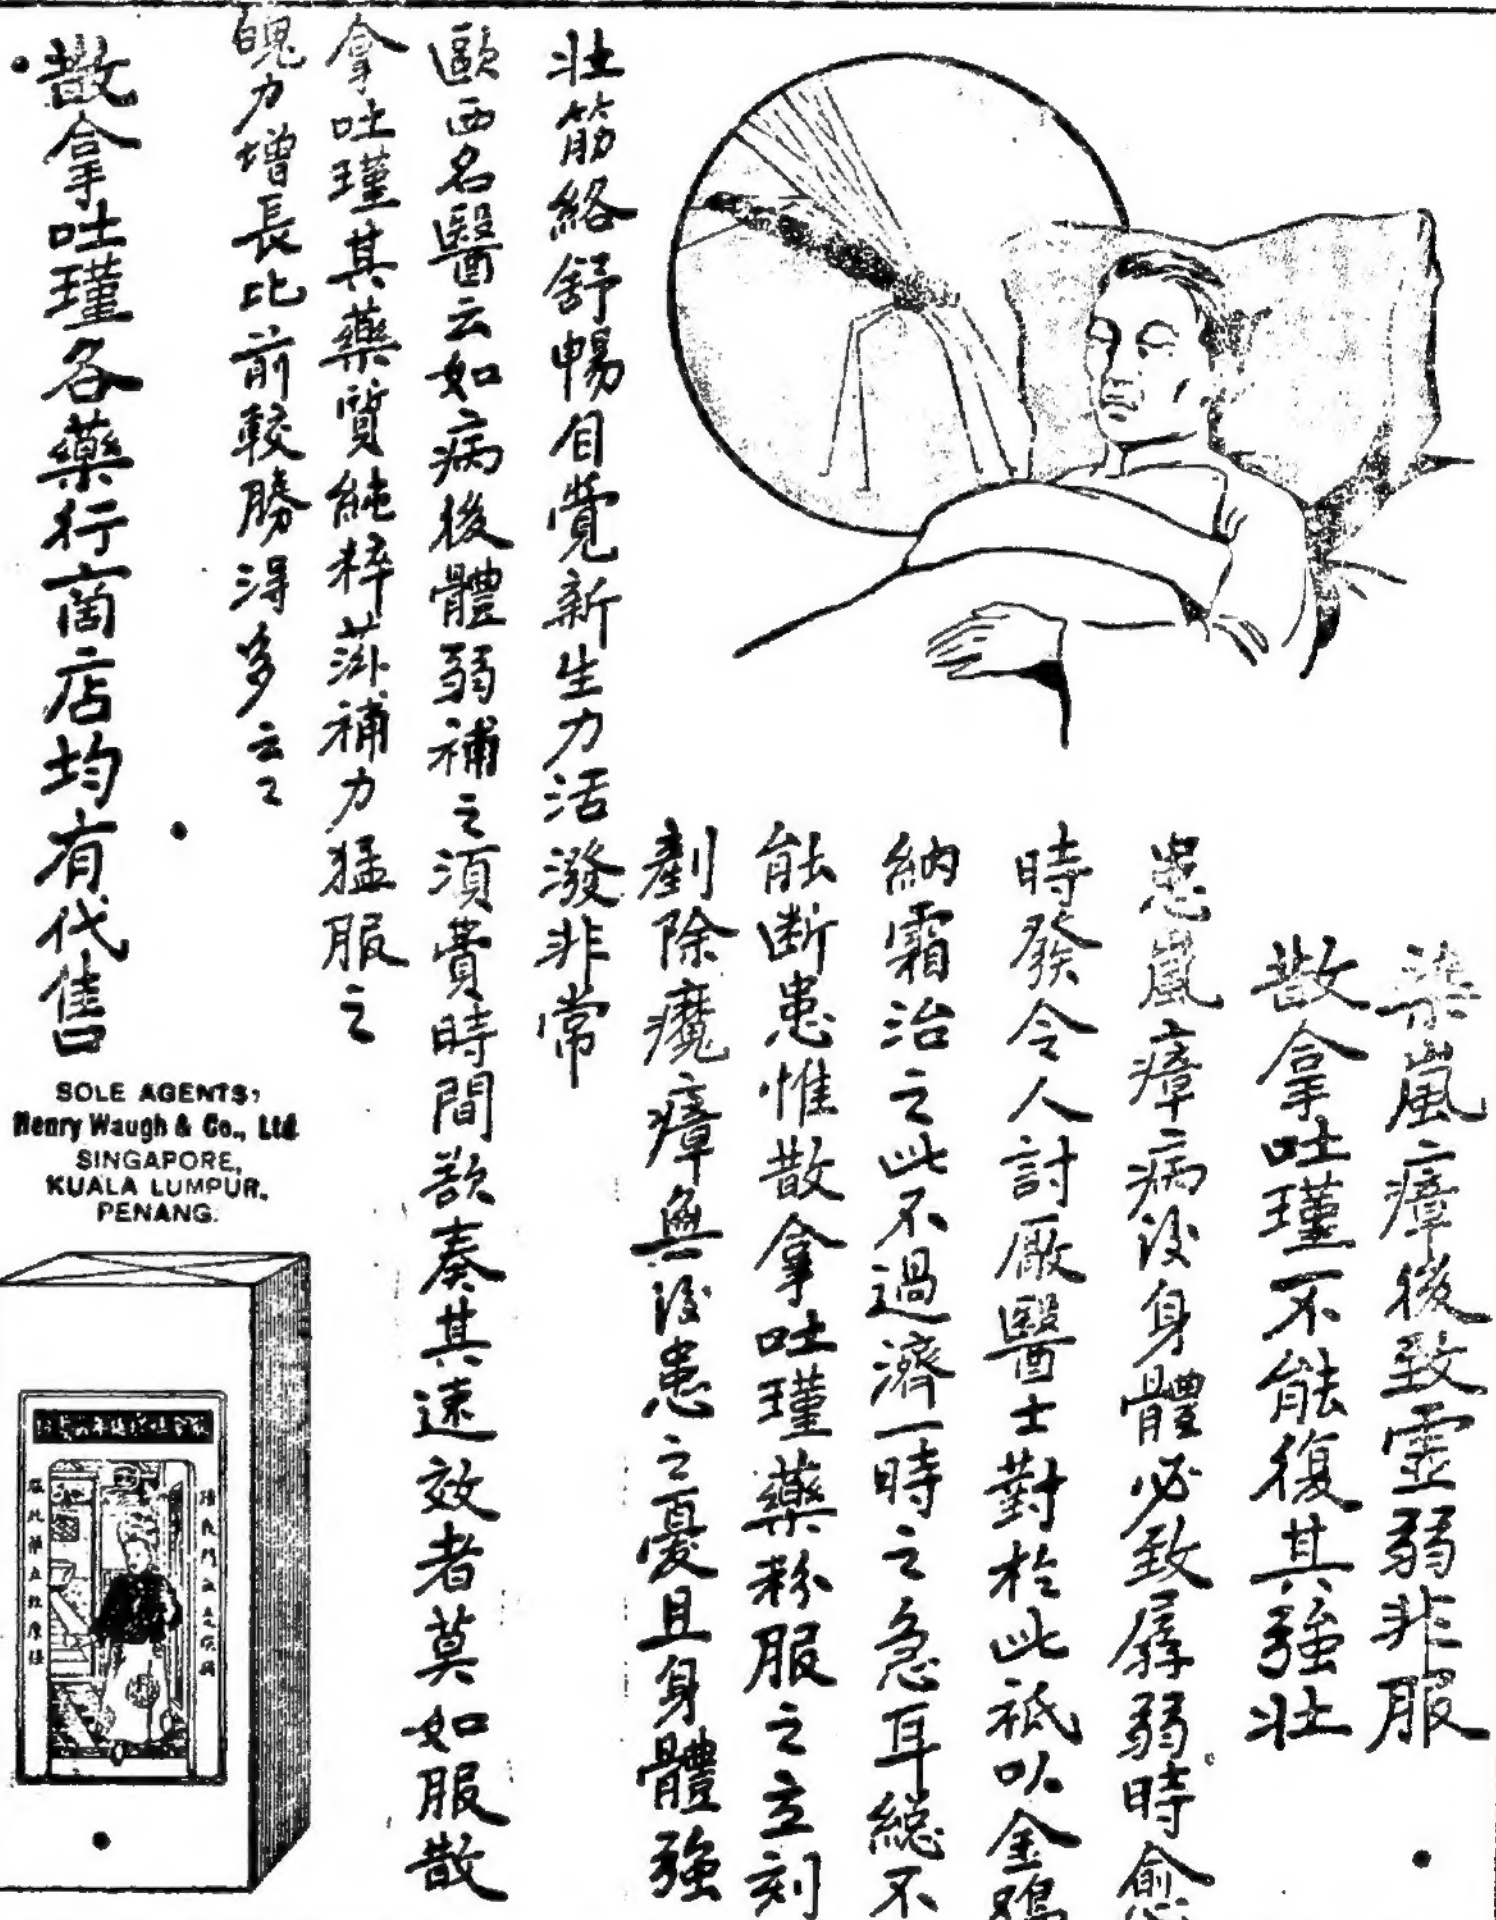 染嵐瘴後致虛弱非服
散拿吐瑾不能復其強壯
患嵐瘴病後身體必致孱弱時愈
時發令人討厭醫士對於此祗以金鷄
納霜治之此不過濟一時之急耳總不
能断患惟散拿吐瑾藥粉服之立刻
剷除魔瘴無後患之憂且身體強
壯筋絡舒暢自覺新生力活潑非常
歐西名醫云如病後體弱補之須費時間欲奏其速效者莫如服散
拿吐瑾其藥質純粹補力猛服之
魄力增長比前較勝得多云云
散拿吐瑾各藥行商店均有代售
SOLE AGENTS,
Henry Waugh & Co., Ltd.
SINGAPORE,
KUALA LUMPUR,
PENANG.